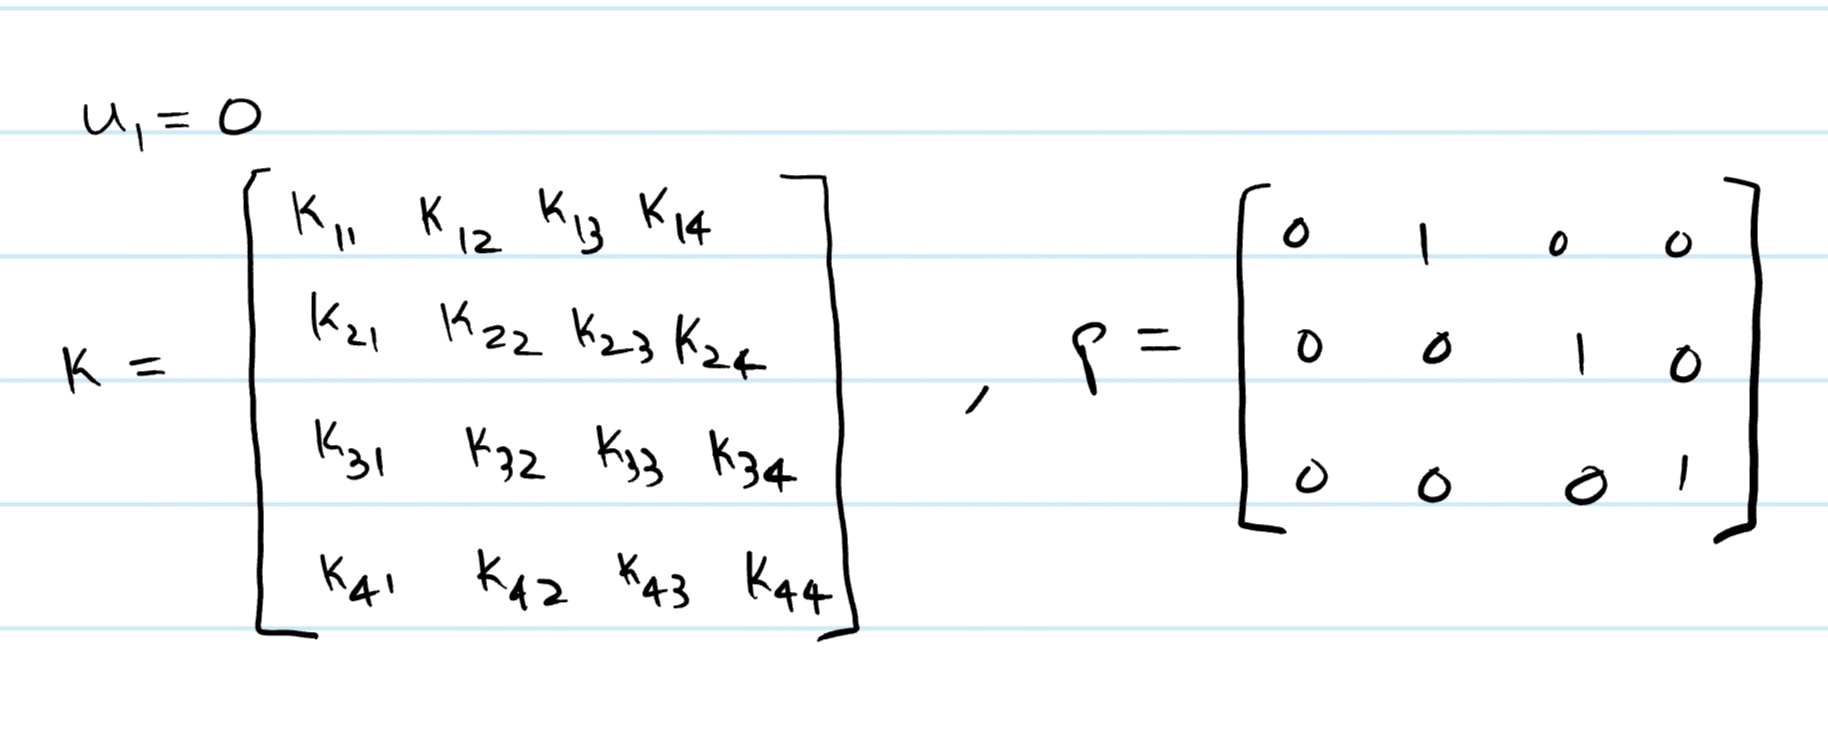 u₁ = 0
K = [ K₁₁ K₁₂ K₁₃ K₁₄
K₂₁ K₂₂ K₂₃ K₂₄
K₃₁ K₃₂ K₃₃ K₃₄
K₄₁ K₄₂ K₄₃ K₄₄ ] , P = [ 0 1 0 0
0 0 1 0
0 0 0 1 ]